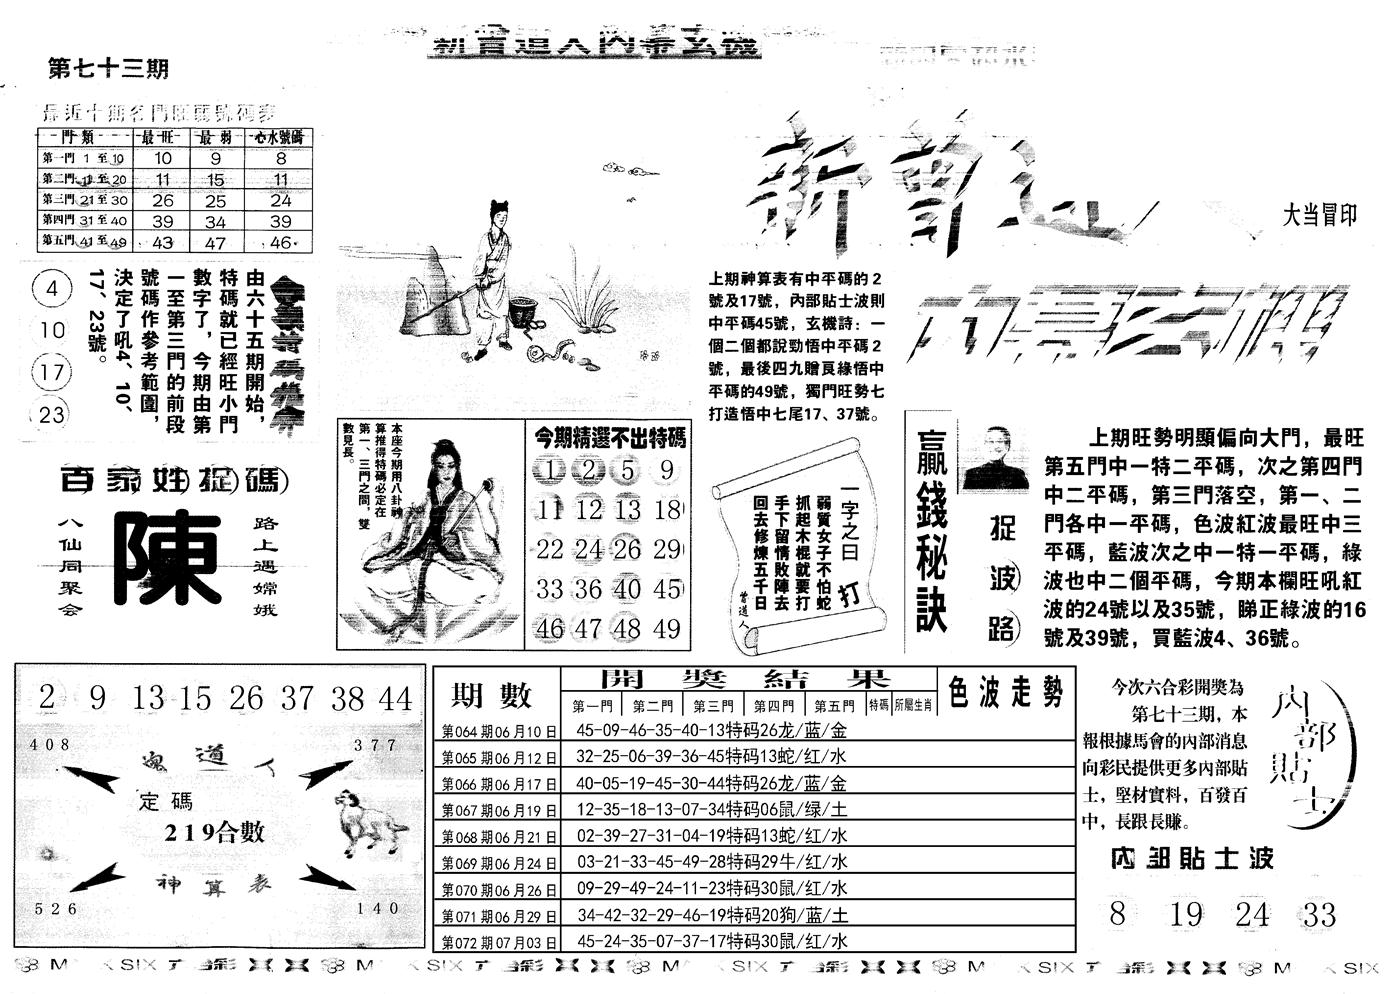 新曾道人內幕玄機
第七十三期
最近十期各門旺弱號碼表
門類 最旺 最弱 心水號碼
第一門 1 至 10 10 9 8
第二門 11 至 20 11 15 11
第三門 21 至 30 26 25 24
第四門 31 至 40 39 34 39
第五門 41 至 49 43 47 46
4
10
17
23
由六十五期開始，
特碼就已經旺小門
數字了，今期由第
一至第三門的前段
號碼作參考範圍，
決定了吼4、10、
17、23號。
百家姓捉碼
路上遇嫦娥
陳
八仙同聚會
新曾道
大当冒印
內幕玄機
上期神算表有中平碼的2
號及17號，內部貼士波則
中平碼45號，玄機詩：一
個二個都說勁悟中平碼2
號，最後四九贈良緣悟中
平碼的49號，獨門旺勢七
打造悟中七尾17、37號。
本座今期用八卦神
算推得特碼必定在
第一、三門之間，雙
數見長。
今期精選不出特碼
1 2 5 9
11 12 13 18
22 24 26 29
33 36 40 45
46 47 48 49
一字之曰
打
弱質女子不怕蛇
抓起木棍就要打
手下留情敗陣去
回去修煉五千日
曾道人
贏錢秘訣
捉波路
上期旺勢明顯偏向大門，最旺
第五門中一特二平碼，次之第四門
中二平碼，第三門落空，第一、二
門各中一平碼，色波紅波最旺中三
平碼，藍波次之中一特一平碼，綠
波也中二個平碼，今期本欄旺吼紅
波的24號以及35號，睇正綠波的16
號及39號，買藍波4、36號。
2 9 13 15 26 37 38 44
408 377
曾道人
定碼
219合數
神算表
526 140
期數 開獎結果 色波走勢
第一門 第二門 第三門 第四門 第五門 特碼 所屬生肖
第064期06月10日 45-09-46-35-40-13特码26龙/蓝/金
第065期06月12日 32-25-06-39-36-45特码13蛇/红/水
第066期06月17日 40-05-19-45-30-44特码26龙/蓝/金
第067期06月19日 12-35-18-13-07-34特码06鼠/绿/土
第068期06月21日 02-39-27-31-04-19特码13蛇/红/水
第069期06月24日 03-21-33-45-49-28特码29牛/红/水
第070期06月26日 09-29-49-24-11-23特码30鼠/红/水
第071期06月29日 34-42-32-29-46-19特码20狗/蓝/土
第072期07月03日 45-24-35-07-37-17特码30鼠/红/水
今次六合彩開獎為
第七十三期，本
報根據馬會的內部消息
向彩民提供更多內部貼
士，堅材實料，百發百
中，長跟長賺。
內部貼士
內部貼士波
8 19 24 33